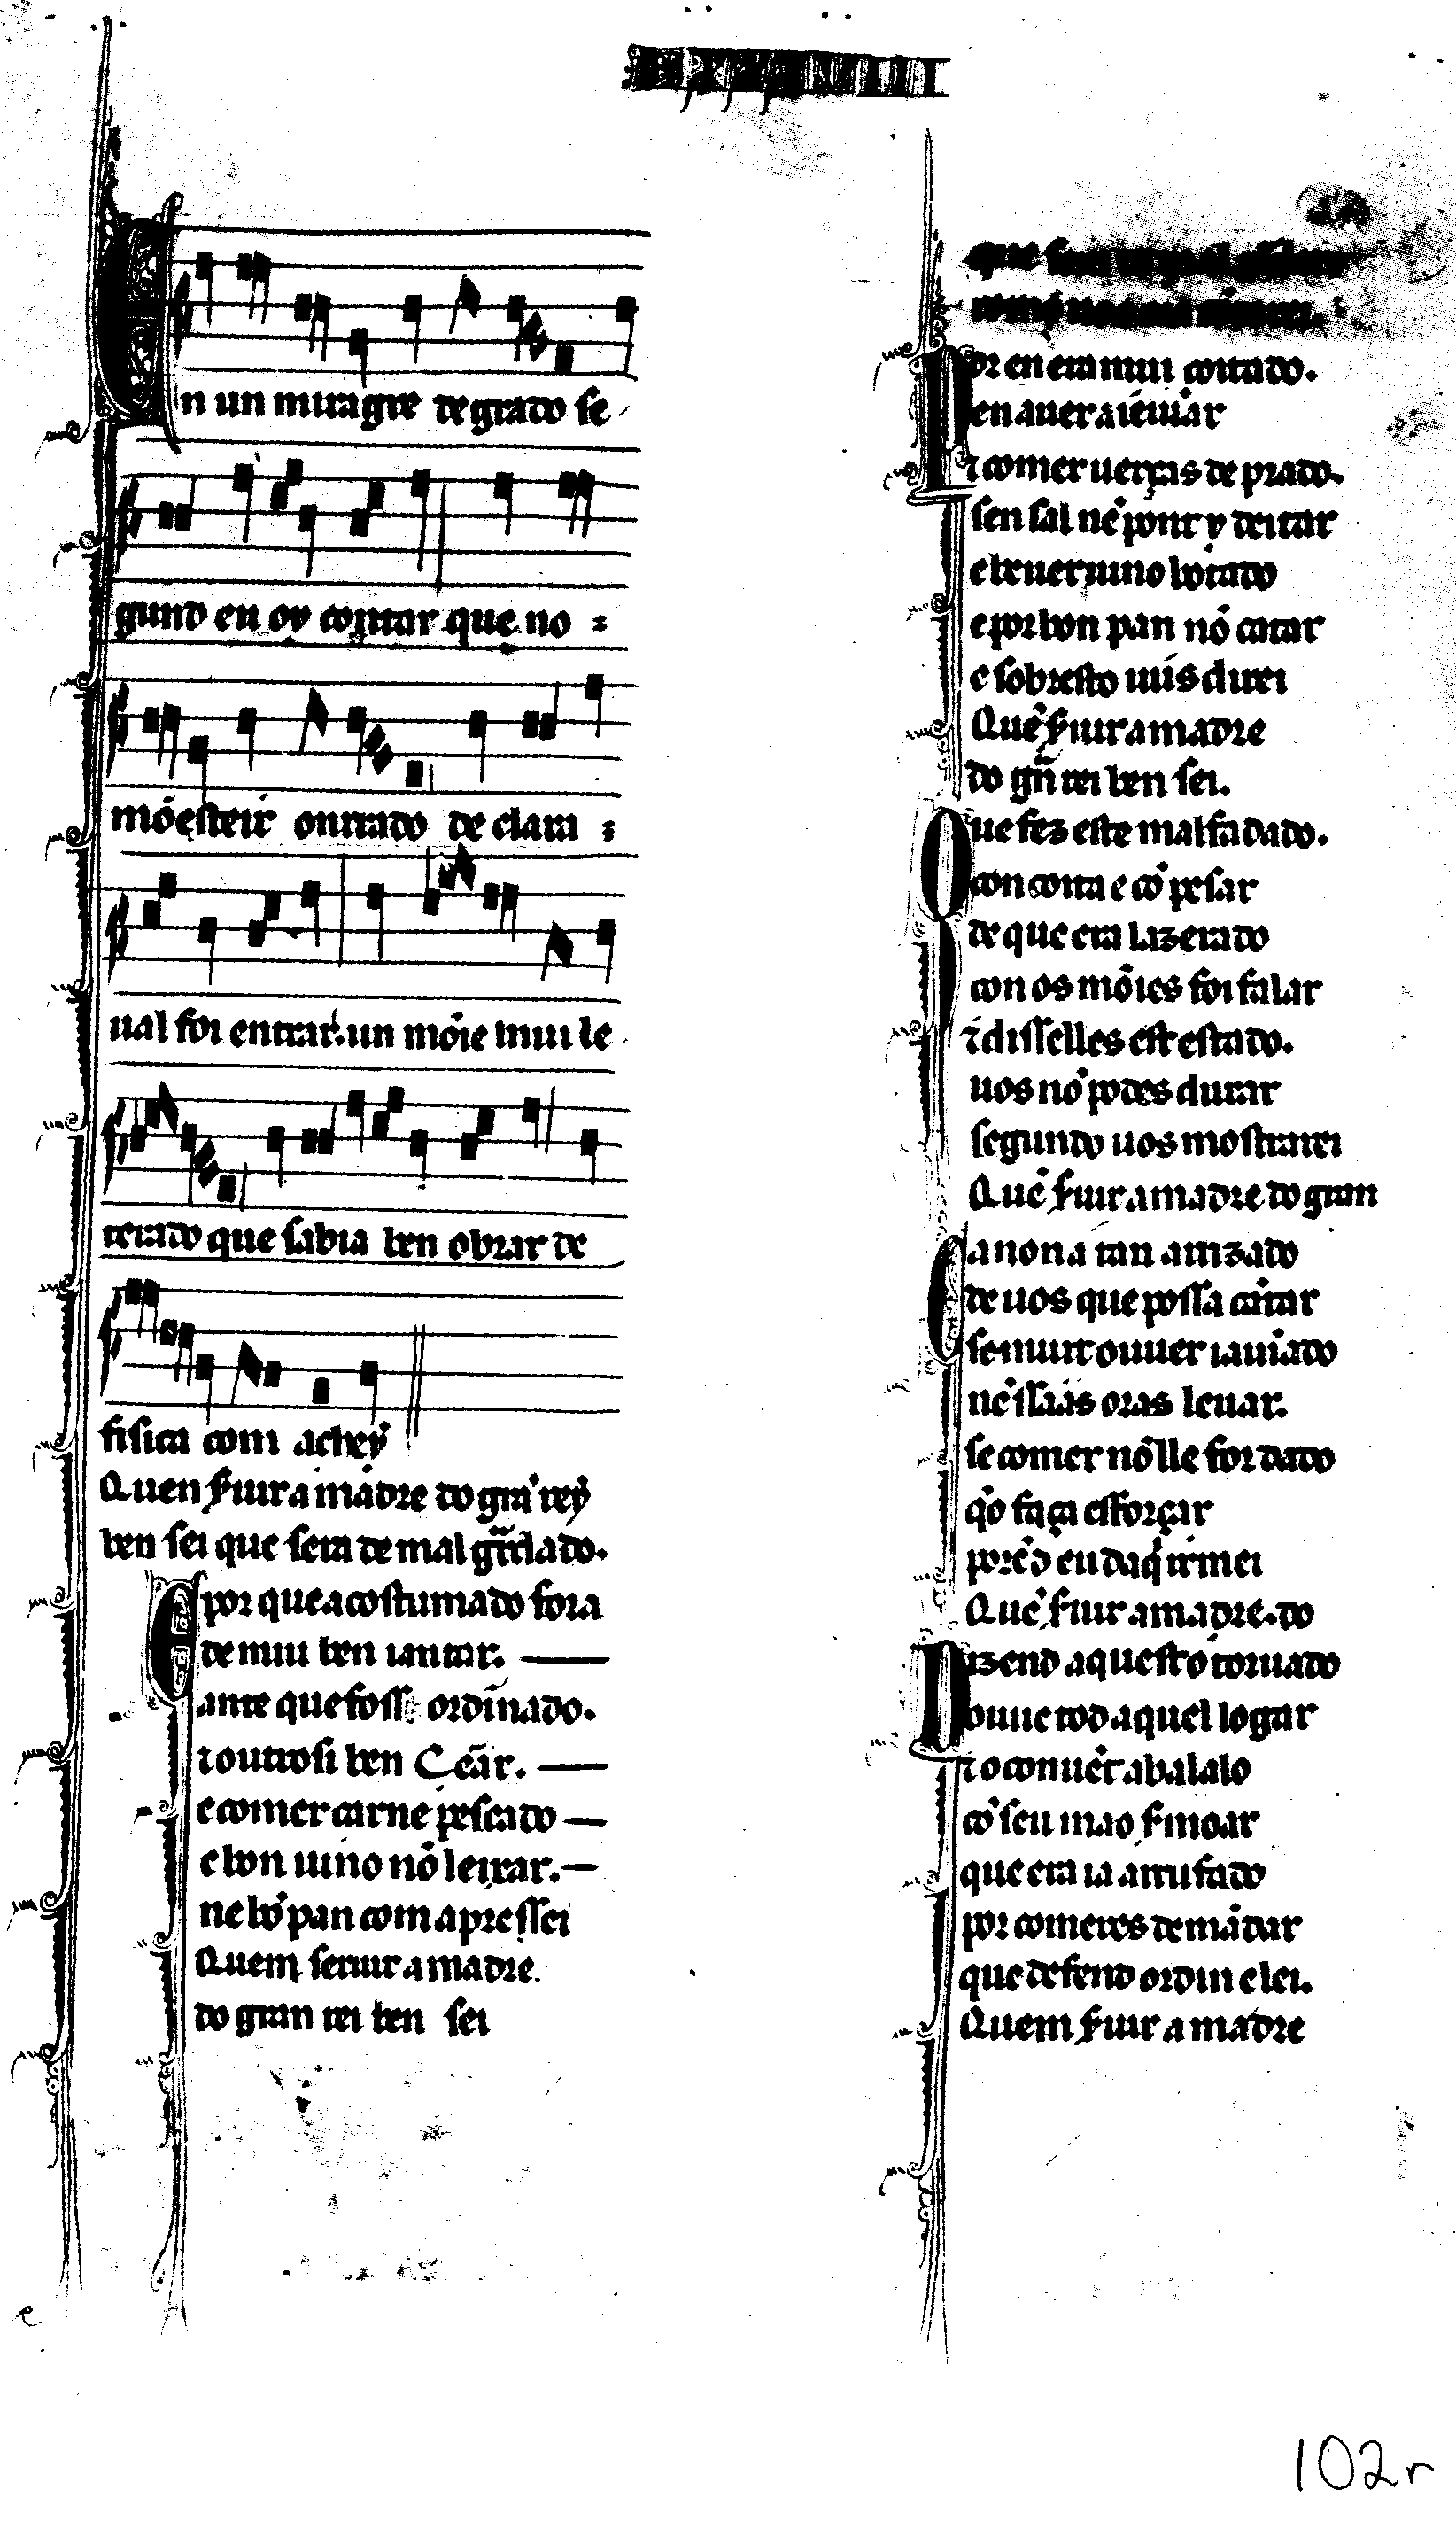 LXXXVIII
En un miragre de grado se
gund en oy contar que no
mōesteir onrrado de clara
ual foi entrar. un mōie mui le
terado que sabia ben obrar de
fisica com achey
Quen ẜuir a madre do grã rey
ben sei que sera de mal g̃rdado.
E por que acostumado fora
de mui ben iantar.
ante que foss ordĩnado.
τ outrosi ben Cẽar.
e comer carne pescado
e bon uino nõ leixar.
ne bõ pan com apressei
Quem seruir a madre.
do gran rei ben sei
que
Por en era mui coitado.
en auer a iẽiũar
τ comer uerças de prado.
sen sal nẽ pont y deitar
e beuer uino botado
e por bon pan nõ catar
e sobresto uus direi
Quẽ ẜuir a madre
do g̃n rei ben sei.
Que fez este malfadado.
con coita e cõ pesar
de que era lazerado
con os mõies foi falar
τ diss elles est estado.
uos nõ podes durar
segundo uos mostrarei
Quẽ ẜuir a madre do gran
Ca non a tan arrizado
de uos que possa cãtar
se muit ouuer iaũado
nẽ ssas oras leuar.
se comer nõ lle for dado
q̇o faça efforçar
porẽd eu daq̇ irmei
Quẽ ẜuir a madre. do
Dizend aquest o toruado
ouue tod aquel logar
τ o conuẽt abalado
cõ seu mao ẜmõar
que era ia arrufado
por comeres demãdar
que defend ordin e lei.
Quem ẜuir a madre
102r